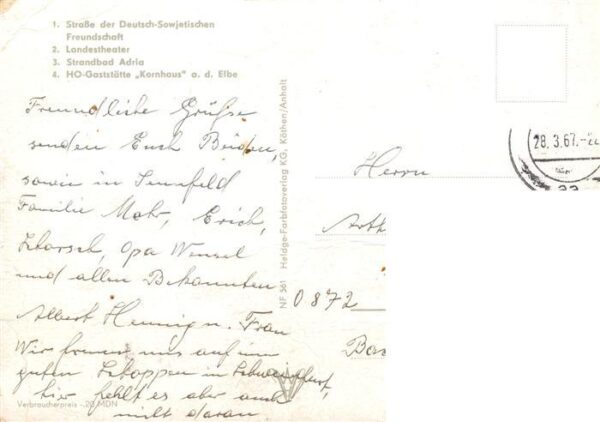 1. Straße der Deutsch-Sowjetischen
Freundschaft
2. Landestheater
3. Strandbad Adria
4. HO-Gaststätte „Kornhaus" a. d. Elbe
Freundliche Grüße
senden Euch Beiden,
sowie in Sennfeld
Familie Mohr, Erich,
Opa Wenzel
und allen Bekannten
Albert Hennig u. Frau
Wir freuen uns auf einen
guten Schoppen in Schweinfurt,
hier fehlt es aber auch
nicht daran.
Verbraucherpreis -,20 MDN
NF 561 Heldge-Farbfotoverlag KG, Köthen/Anhalt
28.3.67.-22
Herrn
Arth
0872